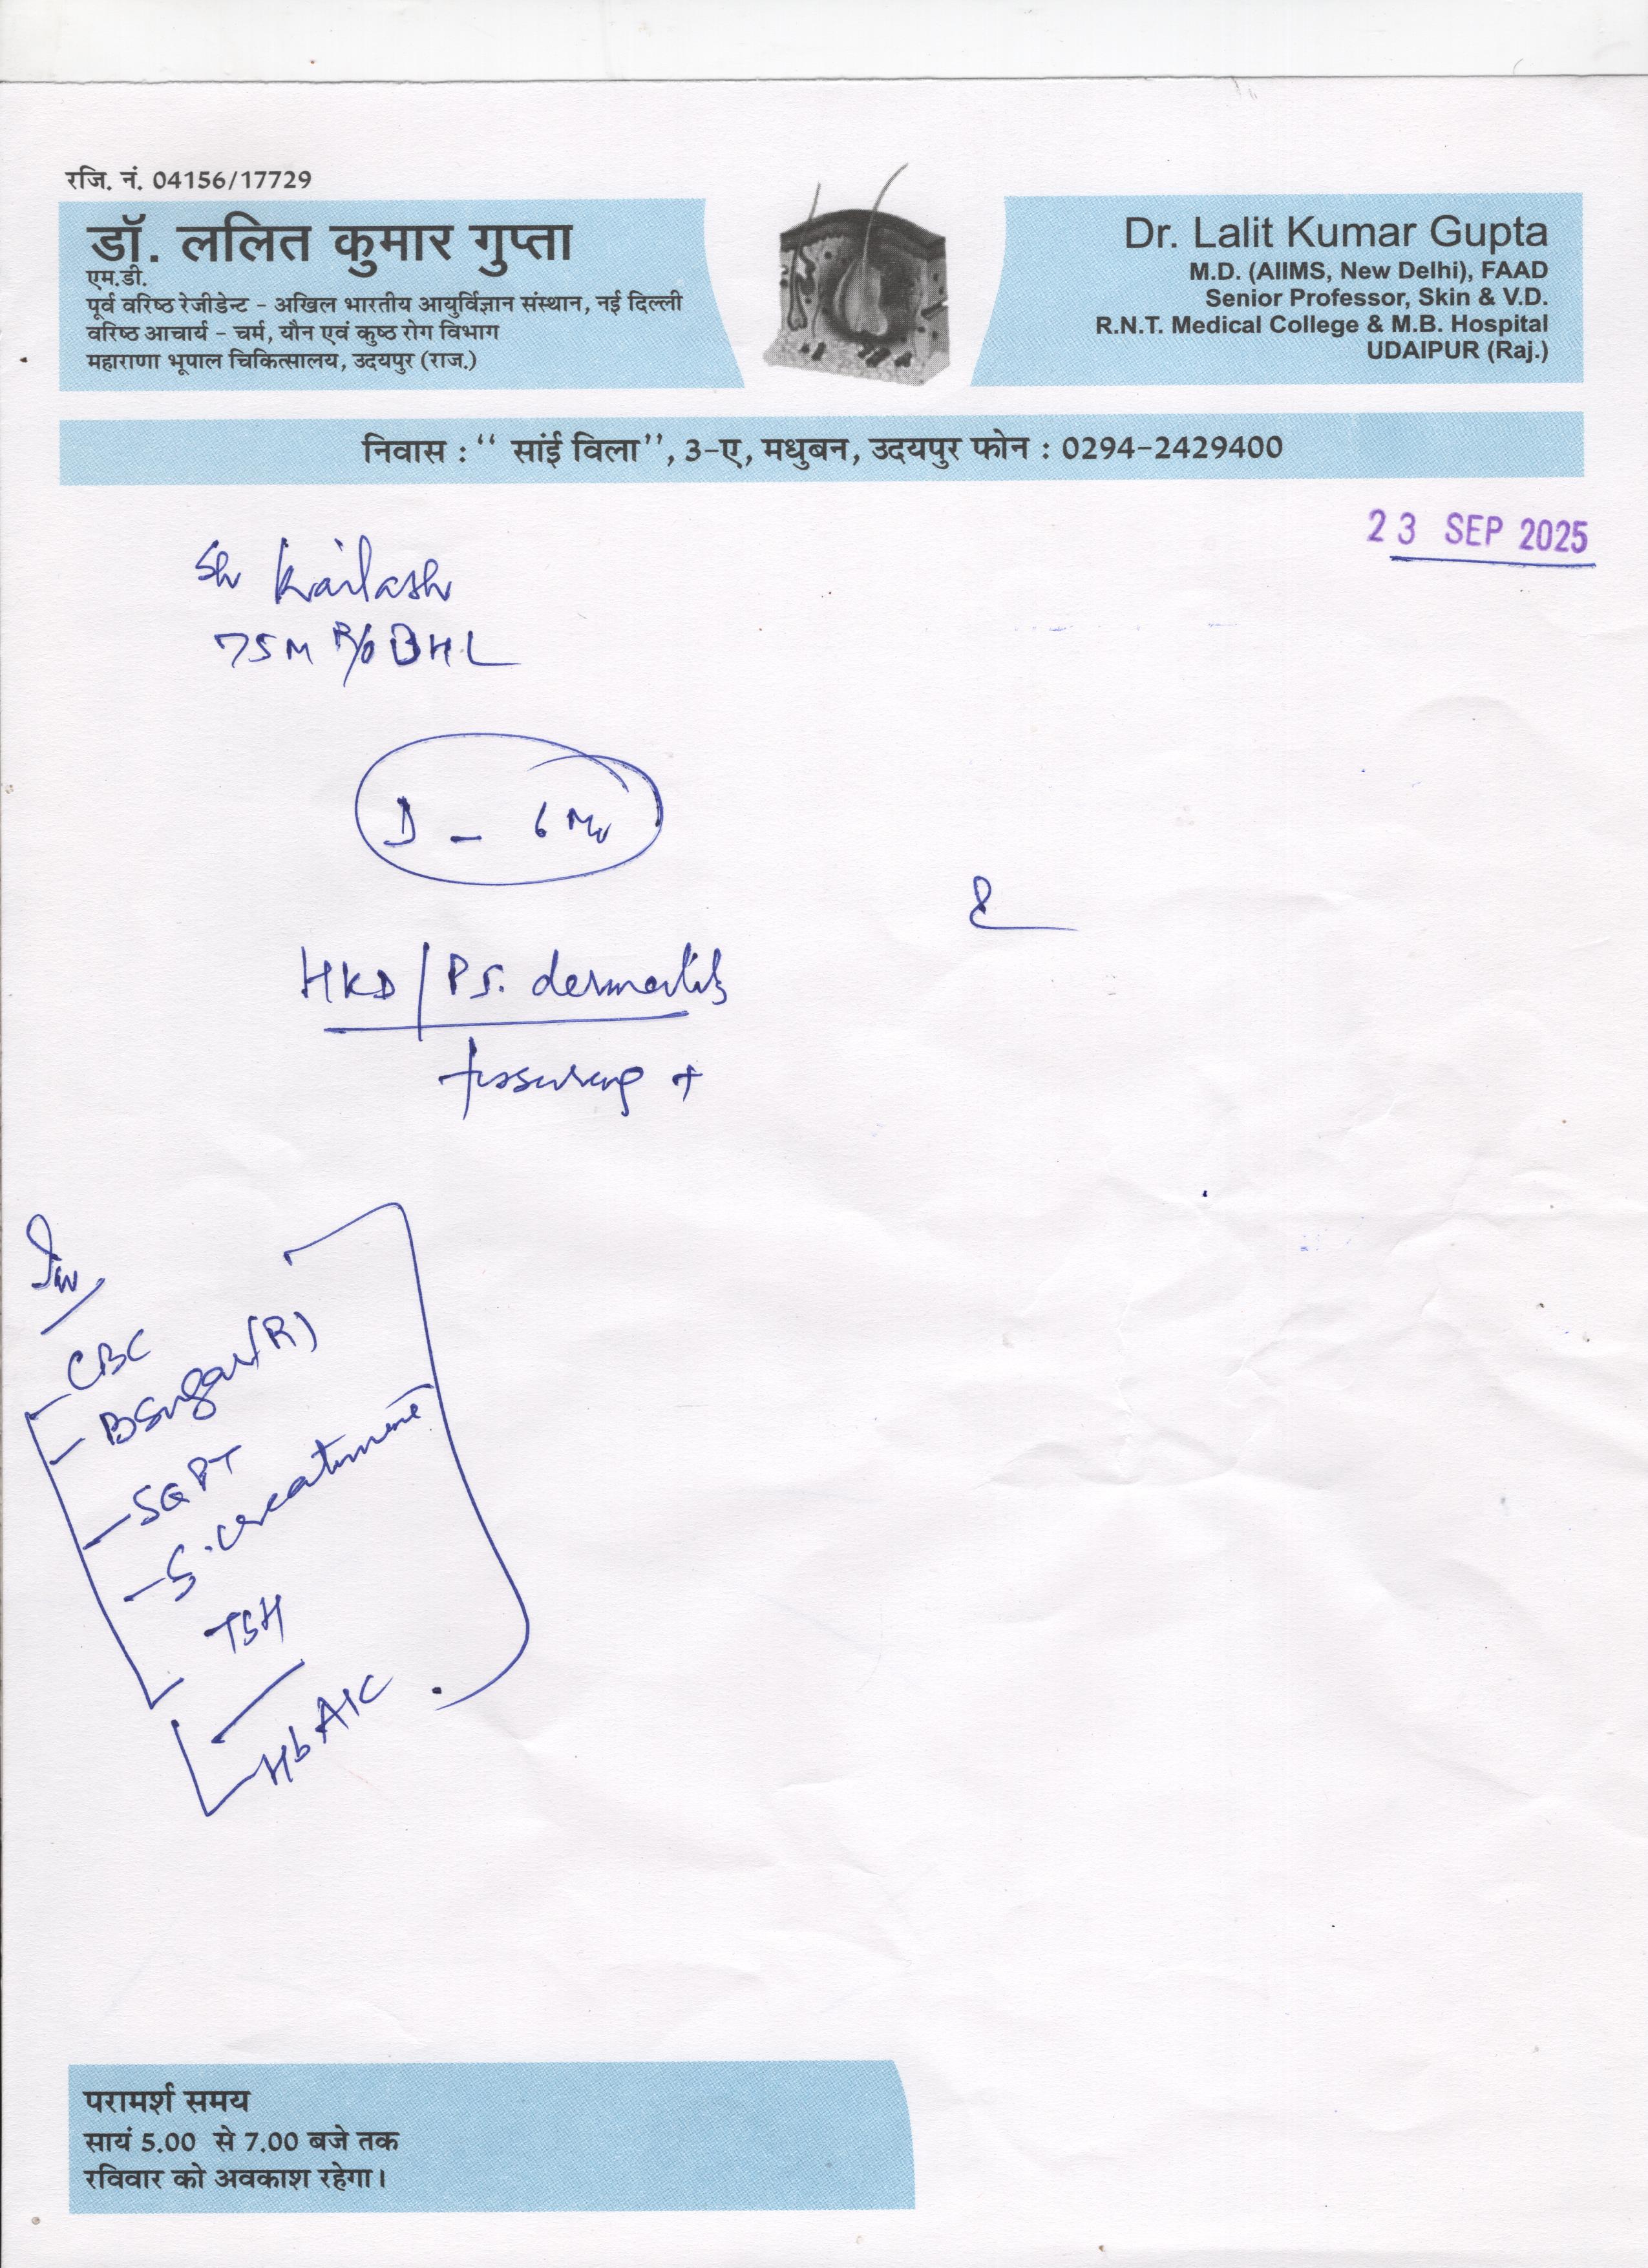 रजि. नं. 04156/17729
डॉ. ललित कुमार गुप्ता
एम.डी.
पूर्व वरिष्ठ रेजीडेन्ट - अखिल भारतीय आयुर्विज्ञान संस्थान, नई दिल्ली
वरिष्ठ आचार्य - चर्म, यौन एवं कुष्ठ रोग विभाग
महाराणा भूपाल चिकित्सालय, उदयपुर (राज.)
Dr. Lalit Kumar Gupta
M.D. (AIIMS, New Delhi), FAAD
Senior Professor, Skin & V.D.
R.N.T. Medical College & M.B. Hospital
UDAIPUR (Raj.)
निवास : “ सांई विला”, 3-ए, मधुबन, उदयपुर फोन : 0294-2429400
23 SEP 2025
Sh Kailash
75M R/o BHL
D - 6 Mo
HKD / Ps. dermatitis
fissuring +
Inv
CBC
B Sugar (R)
SGPT
S. creatinine
TSH
HbA1C
परामर्श समय
सायं 5.00 से 7.00 बजे तक
रविवार को अवकाश रहेगा।